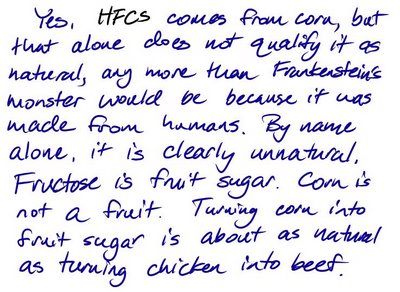 Yes, HFCS comes from corn, but
that alone does not qualify it as
natural, any more than Frankenstein's
monster would be because it was
made from humans. By name
alone, it is clearly unnatural.
Fructose is fruit sugar. Corn is
not a fruit. Turning corn into
fruit sugar is about as natural
as turning chicken into beef.